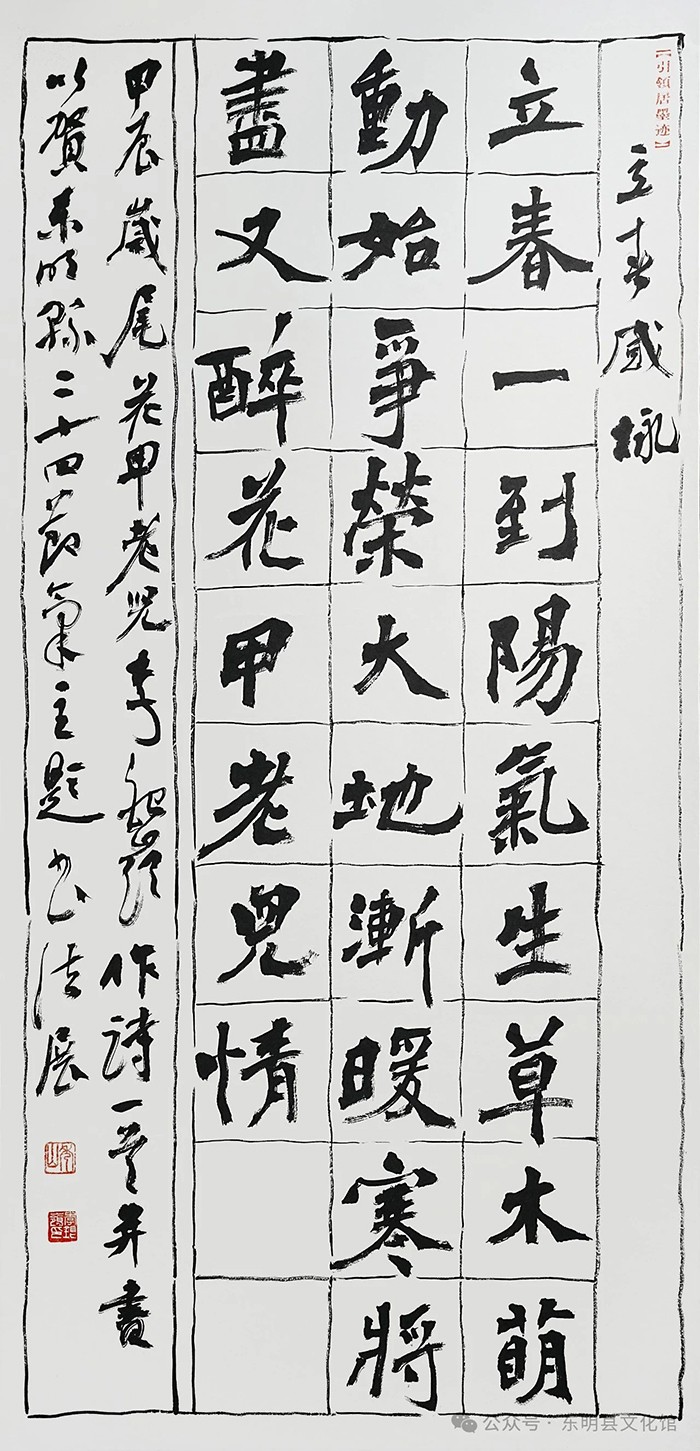 【引领居墨迹】
立春感咏
立春一到陽氣生草木萌
動始爭榮大地漸暖寒將
盡又醉花甲老兒情
甲辰歲尾花甲老兒李 作詩一首并書
以賀東明縣二十四節氣主題書法展
公众号·东明县文化馆